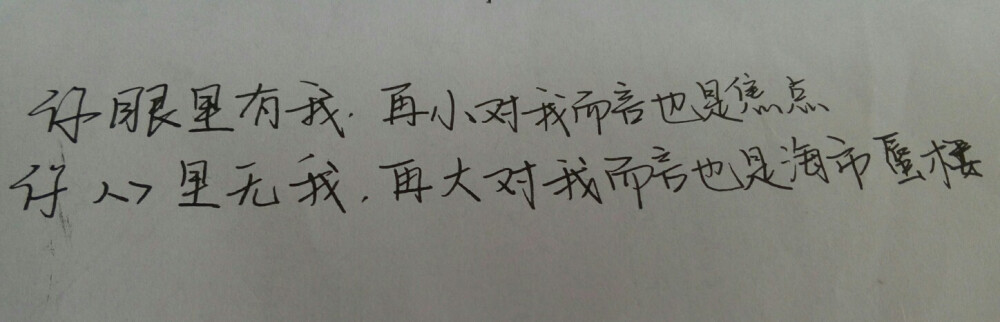 你眼里有我.再小对我而言也是焦点
你心里无我.再大对我而言也是海市蜃楼